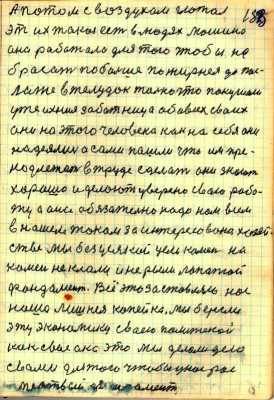 А потом с воздухом глотал 188
эт их такая есть в людях машина
она работала для того чтобы не
бросать побочние
ложите в желудок только что покушали
уже ихния заботница обавсех своих
они на этого человека как на себя они
надеялис а сами пашли что им пре-
в труде сделат они знают
хорошо и делают уверено сваю рабо-
ту а мне обязательно надо нам всем
в нашем таком заинтересована хозяй-
стве мы без усякой цели камен на
камен не клали и не рыли лопатой
фондамент. Всё это заставляло нас
наша лишняя копейка, мы берегли
эту экономику сваею политекой
как свае око это мы делали дело
сваими для того чтобы у нас рос